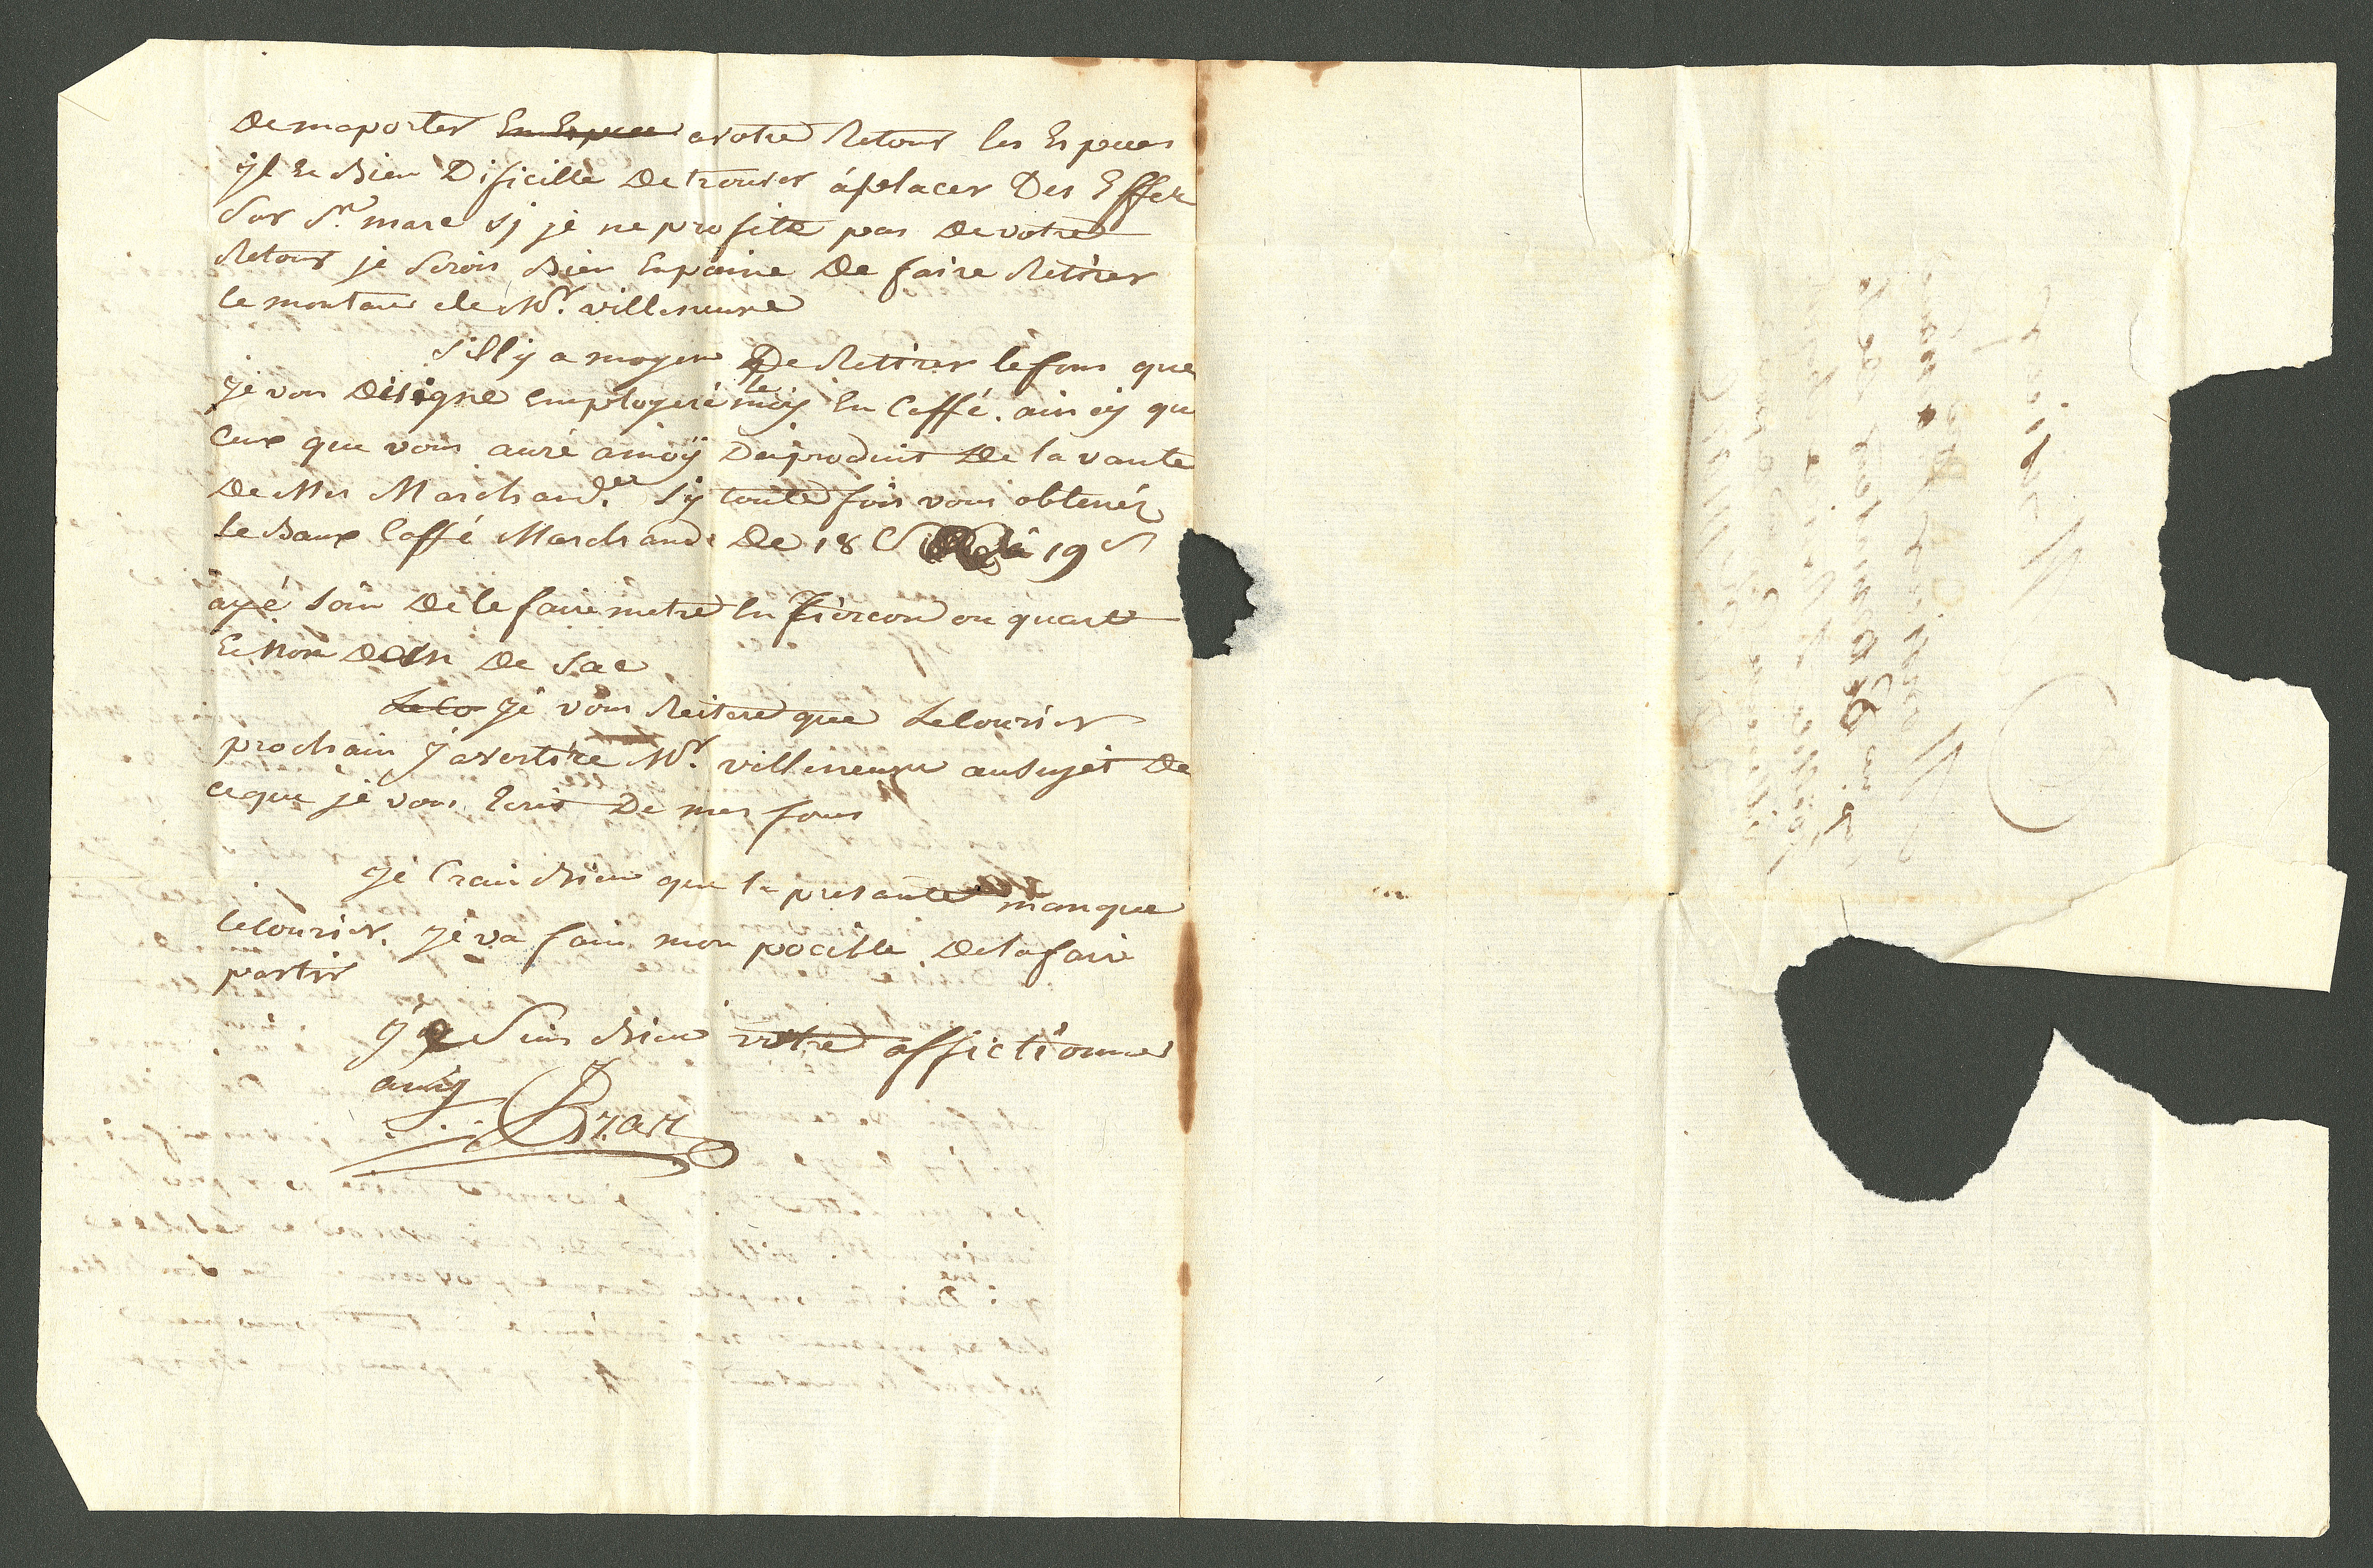 De maporter En Espece avotre Retour les Especes
yl Ee Bien Dificille De trouver áplacer Des Effets
Sur St. marc sy je ne profite pas De votre
Retour je Serois Bien Enpaine De faire Retirer
le montant de Mr. villeneuve
S'illy a moyen De Rettirer le fons que
je vous Désigne employeré le moy En Caffé. ainsy que
Ceux que vous auré amoÿ Du produit De la vante
De Mes Marchand.es Sy toute fois vous obtenéz
Le Baux Caffé Marchand De 18 s à 19 s
ayé soin De le faire metre En Tiercon ou quart
Ee Non De Sac
Le Co Je vous Reitere que Le Courier
prochain J'avertire Mr. villeneuve au Sujet De
ce que je vous Ecris De mes fons
Je Crain Bien que la presante manque
le Courier. Je va faire mon pocible De la faire
partir
Je Suis Bien votre affectionné
amy